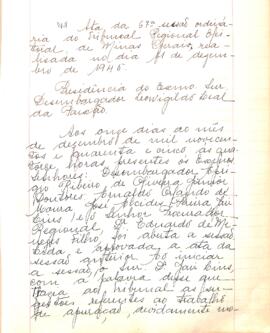 Ata da 67ª sessão ordiná-
ria do Tribunal Regional Elei-
toral, de Minas Gerais, rea-
lisada no dia 11 de dezem-
bro de 1945
Presidência do Exmo. Snr.
Desembargador Leovigildo Leal
da Paixão.
Aos onze dias do mês
de dezembro de mil novecen-
tos e quarenta e cinco, as qua-
torze horas, presentes os Exmos
Senhores: Desembargador
Ribeiro de Oliveira Junior
Doutores Amaldo
Moura José Alcides Pereira
Lins e o Senhor Procurador
Regional, Dr. Eduardo de Me-
nezes Filho, foi aberta a sessão,
lida, e aprovada, a ata da
sessão anterior. Ao iniciar
a sessão, o Snr. Dr. Lins,
com a palavra disse que
trazia ao tribunal as su-
gestões referentes ao trabalho
de apuração, devidamente